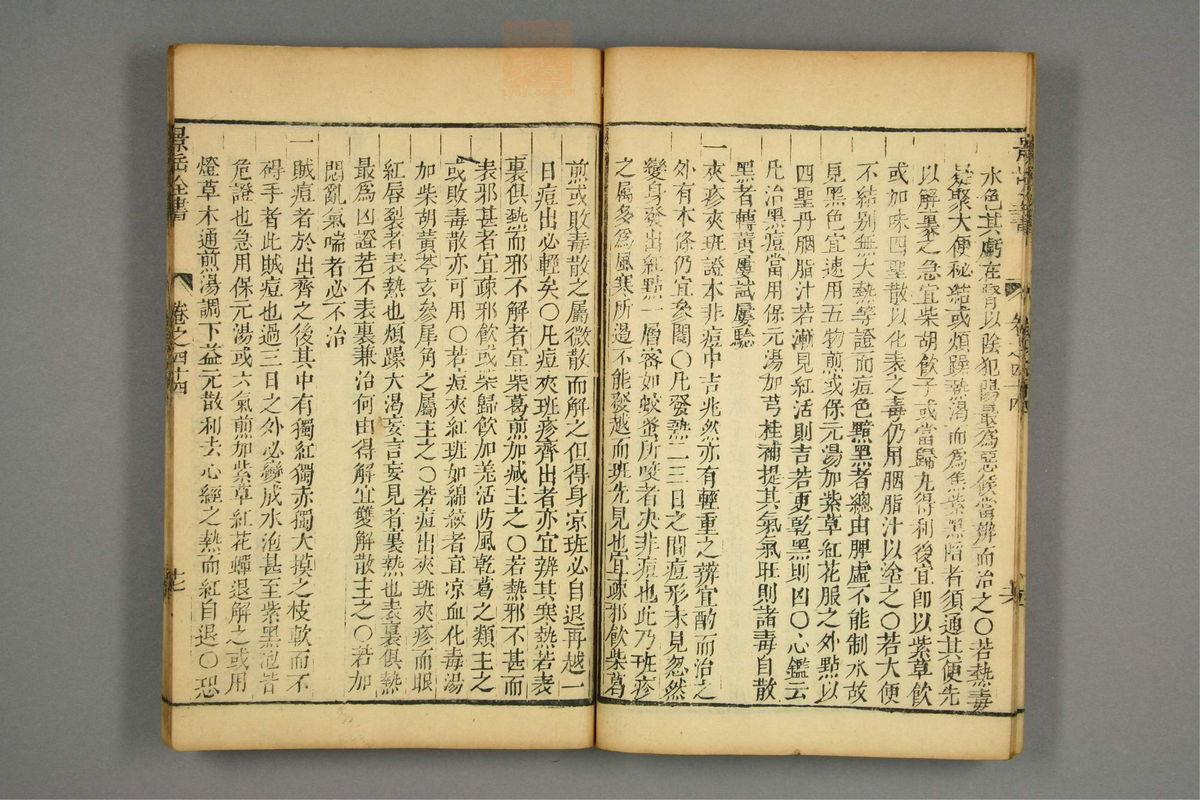 水色其虧在腎以陰犯陽最爲惡候當辨而治之〇若熱毒
凝聚大便秘結或煩躁熱渴而爲焦紫黑陷者須通其便先
以解裏之急宜柴胡飲子或當歸丸得利後宜卽以紫草飲
或加味四聖散以化表之毒仍用胭脂汁以塗之〇若大便
不結別無大熱等證而痘色黯黑者總由脾虛不能制水故
見黑色宜速用五物煎或保元湯加紫草紅花服之外點以
四聖丹胭脂汁若漸見紅活則吉若更乾黑則凶〇心鑑云
凡治黑痘當用保元湯加芎桂補提其氣氣旺則諸毒自散
黑者轉黃屢試屢驗
一夾疹夾班證本非痘中吉兆然亦有輕重之辨宜酌而治之
外有本條仍宜叅閱〇凡發熱二三日之間痘形未見忽然
變身發出紅點一層密如蚊蚤所咬者决非痘也此乃班疹
之屬多爲風寒所遏不能發越而班先見也宜疎邪飲柴葛
煎或敗毒散之屬微散而解之但得身凉班必自退再越一
日痘出必輕矣〇凡痘夾班疹齊出者亦宜辨其寒熱若表
裏俱熱而邪不解者宜柴葛煎加減主之〇若熱邪不甚而
表邪甚者宜疎邪飲或柴歸飲加羌活防風乾葛之類主之
或敗毒散亦可用〇若痘夾紅班如綿紋者宜凉血化毒湯
加柴胡黃芩玄參犀角之屬主之〇若痘出夾班夾疹而眼
紅唇裂者表熱也煩躁大渴妄言妄見者裏熱也表裏俱熱
最爲凶證若不表裏兼治何由得解宜雙解散主之〇若加
悶亂氣喘者必不治
一賊痘者於出齊之後其中有獨紅獨赤獨大摸之枝軟而不
碍手者此賊痘也過三日之外必變成水泡甚至紫黑泡皆
危證也急用保元湯或六氣煎加紫草紅花蟬退解之或用
燈草木通煎湯調下益元散利去心經之熱而紅自退〇恐
景岳全書
卷之四十四